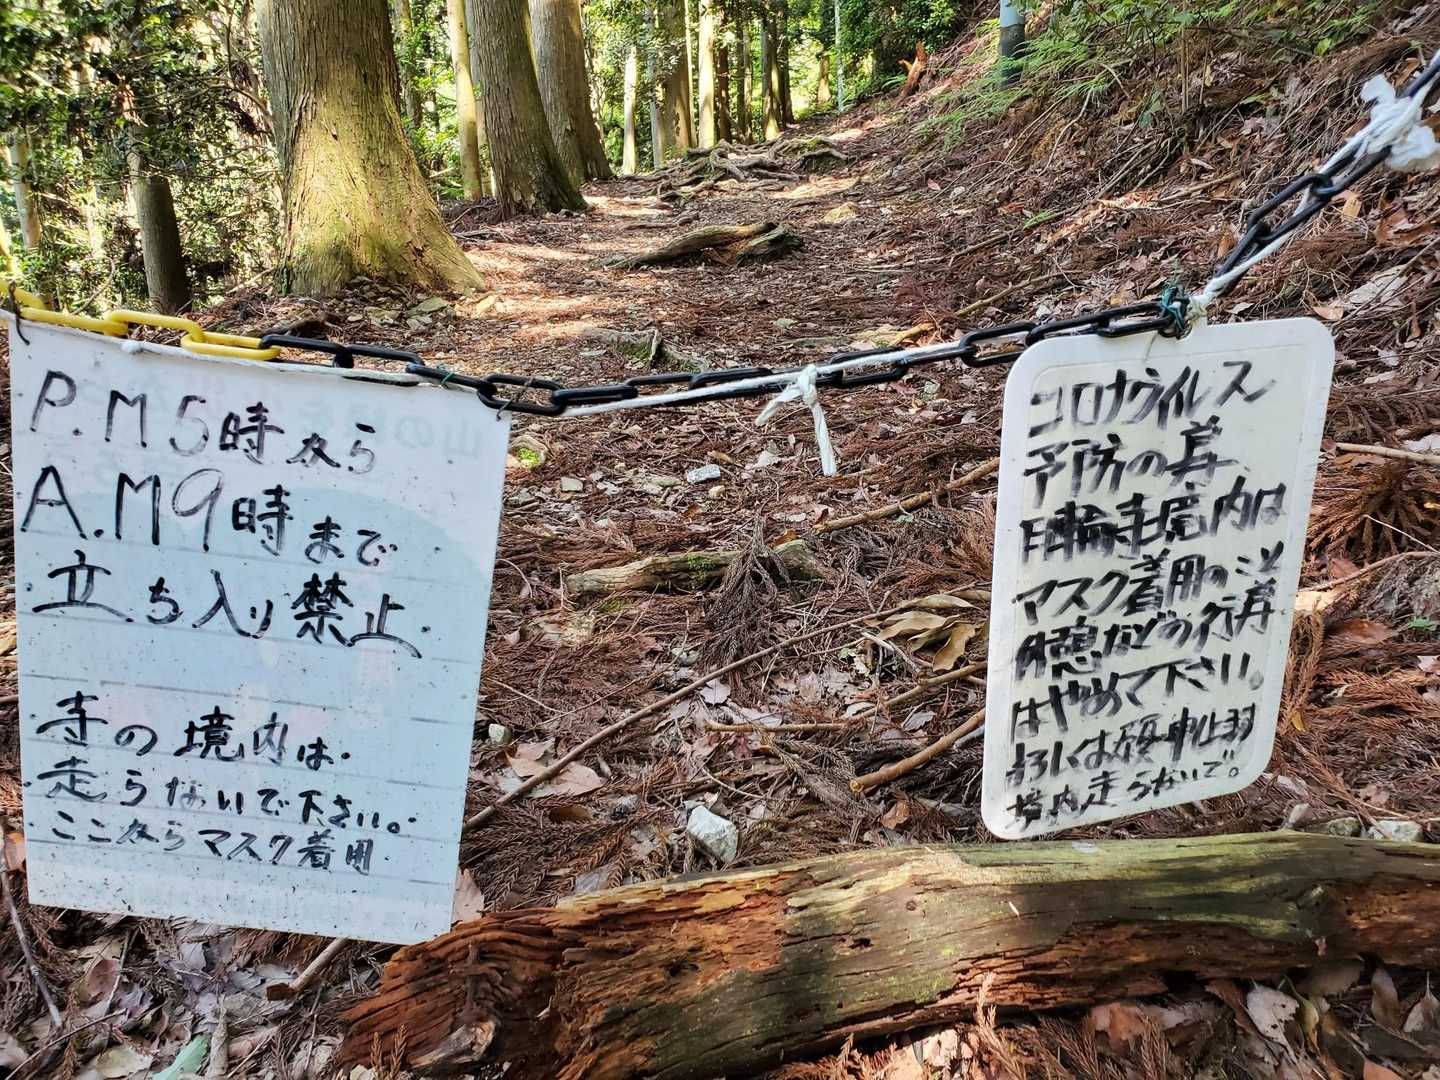 P.M5時から
A.M9時まで
立ち入り禁止
寺の境内は
走らないで下さい。
ここからマスク着用
コロナウイルス
予防の為、
月輪寺境内は
マスク着用の上
休憩などの行為
はやめて下さい。
境内走らないで。